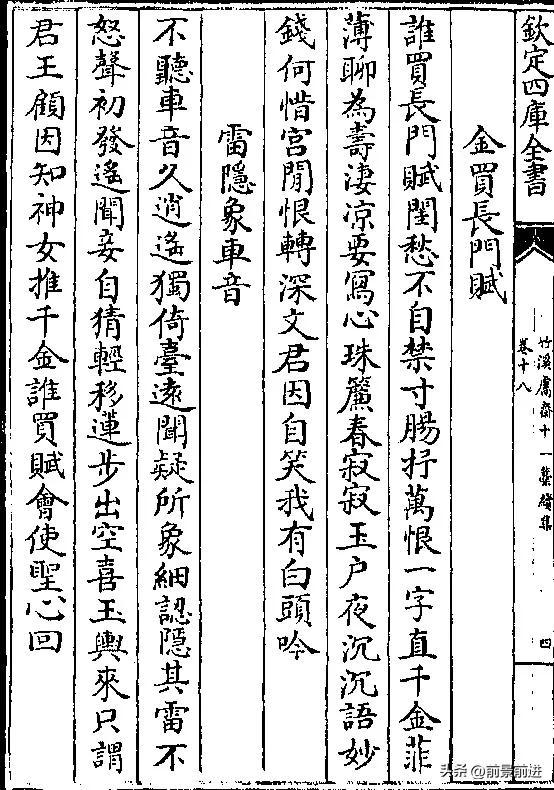 欽定四庫全書
竹溪鬳齋十一藁續集
卷十八
四
金買長門賦
誰買長門賦閨愁不自禁寸腸抒萬恨一字直千金菲
薄聊為壽淒凉要寫心珠簾春寂寂玉户夜沉沉語妙
錢何惜宫閒恨轉深文君因自笑我有白頭吟
雷隱象車音
不聽車音久逍遙獨倚臺遠聞疑所象細認隱其雷不
怒聲初發遙聞妾自猜輕移蓮步出空喜玉輿來只謂
君王顧因知神女推千金誰買賦會使聖心回
头条 @前景前进